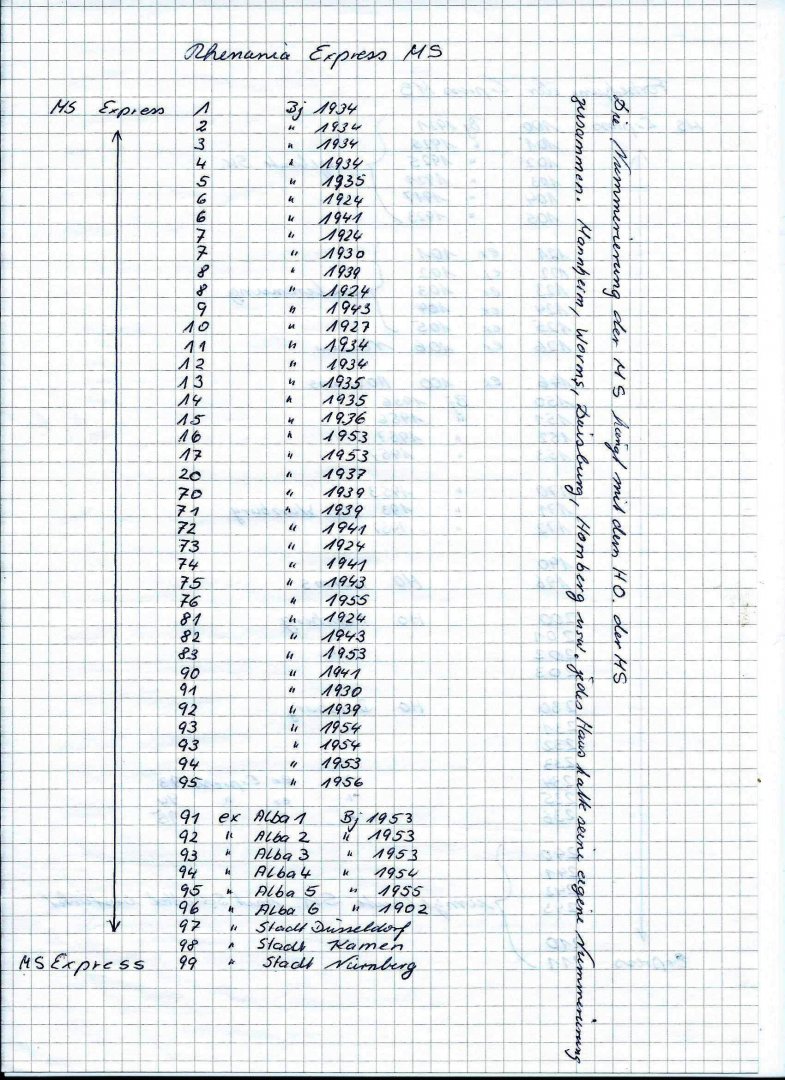 Rhenania Express MS
MS Express 1 Bj 1934
2 " 1934
3 " 1934
4 " 1934
5 " 1935
6 " 1924
6 " 1941
7 " 1924
7 " 1930
8 " 1939
8 " 1924
9 " 1943
10 " 1927
11 " 1934
12 " 1934
13 " 1935
14 " 1935
15 " 1936
16 " 1953
17 " 1953
20 " 1937
70 " 1939
71 " 1939
72 " 1941
73 " 1924
74 " 1941
75 " 1943
76 " 1955
81 " 1924
82 " 1943
83 " 1953
90 " 1941
91 " 1930
92 " 1939
93 " 1954
93 " 1954
94 " 1953
95 " 1956
91 ex Alba 1 Bj 1953
92 " Alba 2 " 1953
93 " Alba 3 " 1953
94 " Alba 4 " 1954
95 " Alba 5 " 1955
96 " Alba 6 " 1902
97 " Stadt Düsseldorf
98 " Stadt Kamen
MS Express 99 " Stadt Nürnberg
Die Nummerierung der MS hängt mit dem HO. der MS
zusammen. Mannheim, Worms, Duisburg, Homberg usw. jedes Haus hatte seine eigene Nummerierung